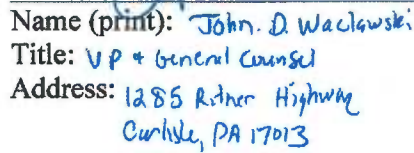 Name (print): John. D. Waclawski
Title: VP + General Counsel
Address: 1285 Ritner Highway
Carlisle, PA 17013